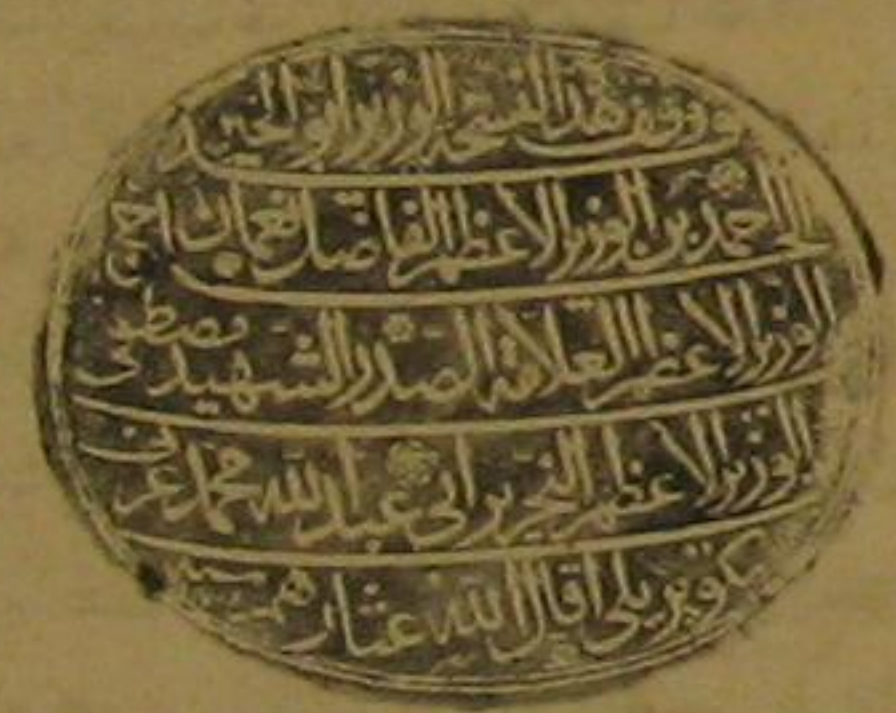 وقف هذا النسخة الوزير أبو الخير
الحاج أحمد بن الوزير الأعظم الفاضل نعمان
الوزير الأعظم العلامة الصدر الشهيد مصطفى
الوزير الأعظم النحرير أبي عبد الله محمد عرف
بكوپريلي أقال الله عثارهم